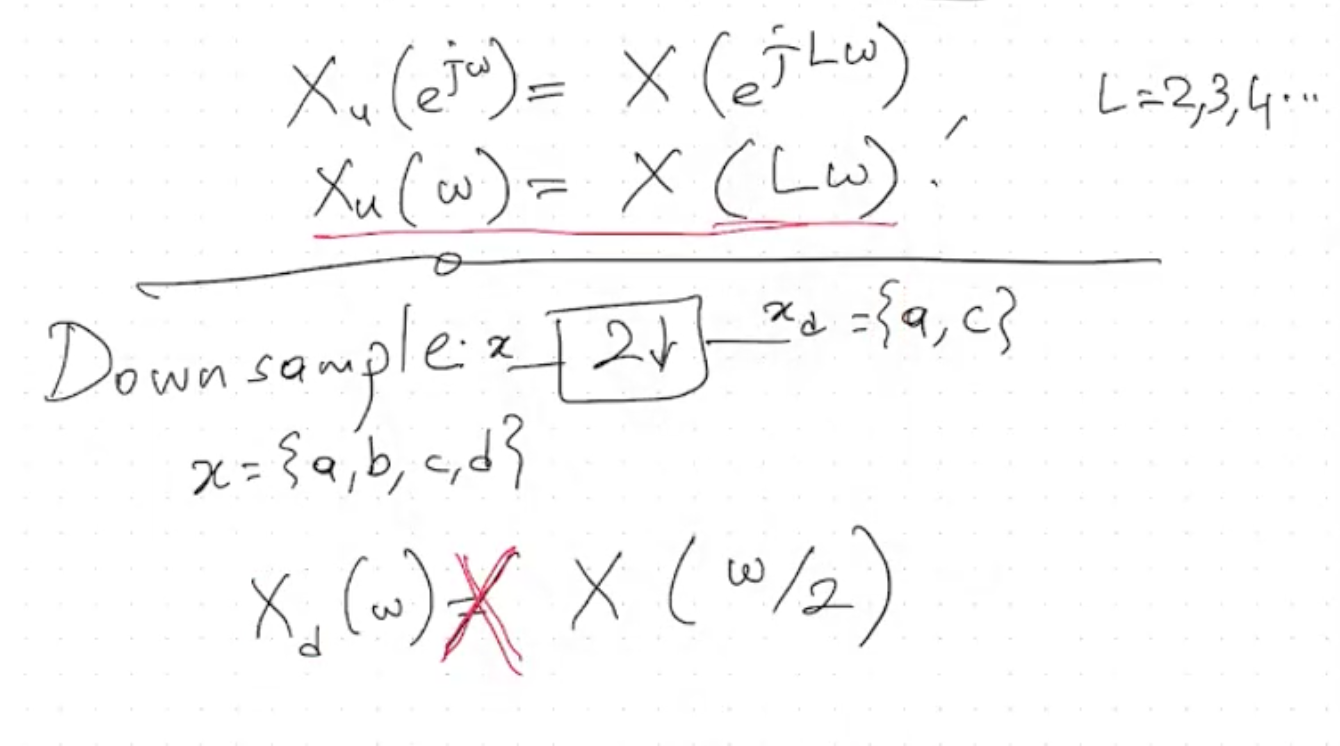 Xᵤ(e^{jω}) = X(e^{jLω}) L=2,3,4...
Xᵤ(ω) = X(Lω).
Down sample: x 2↓ x_d = {a, c}
x = {a, b, c, d}
X_d(ω) = X(ω/2)